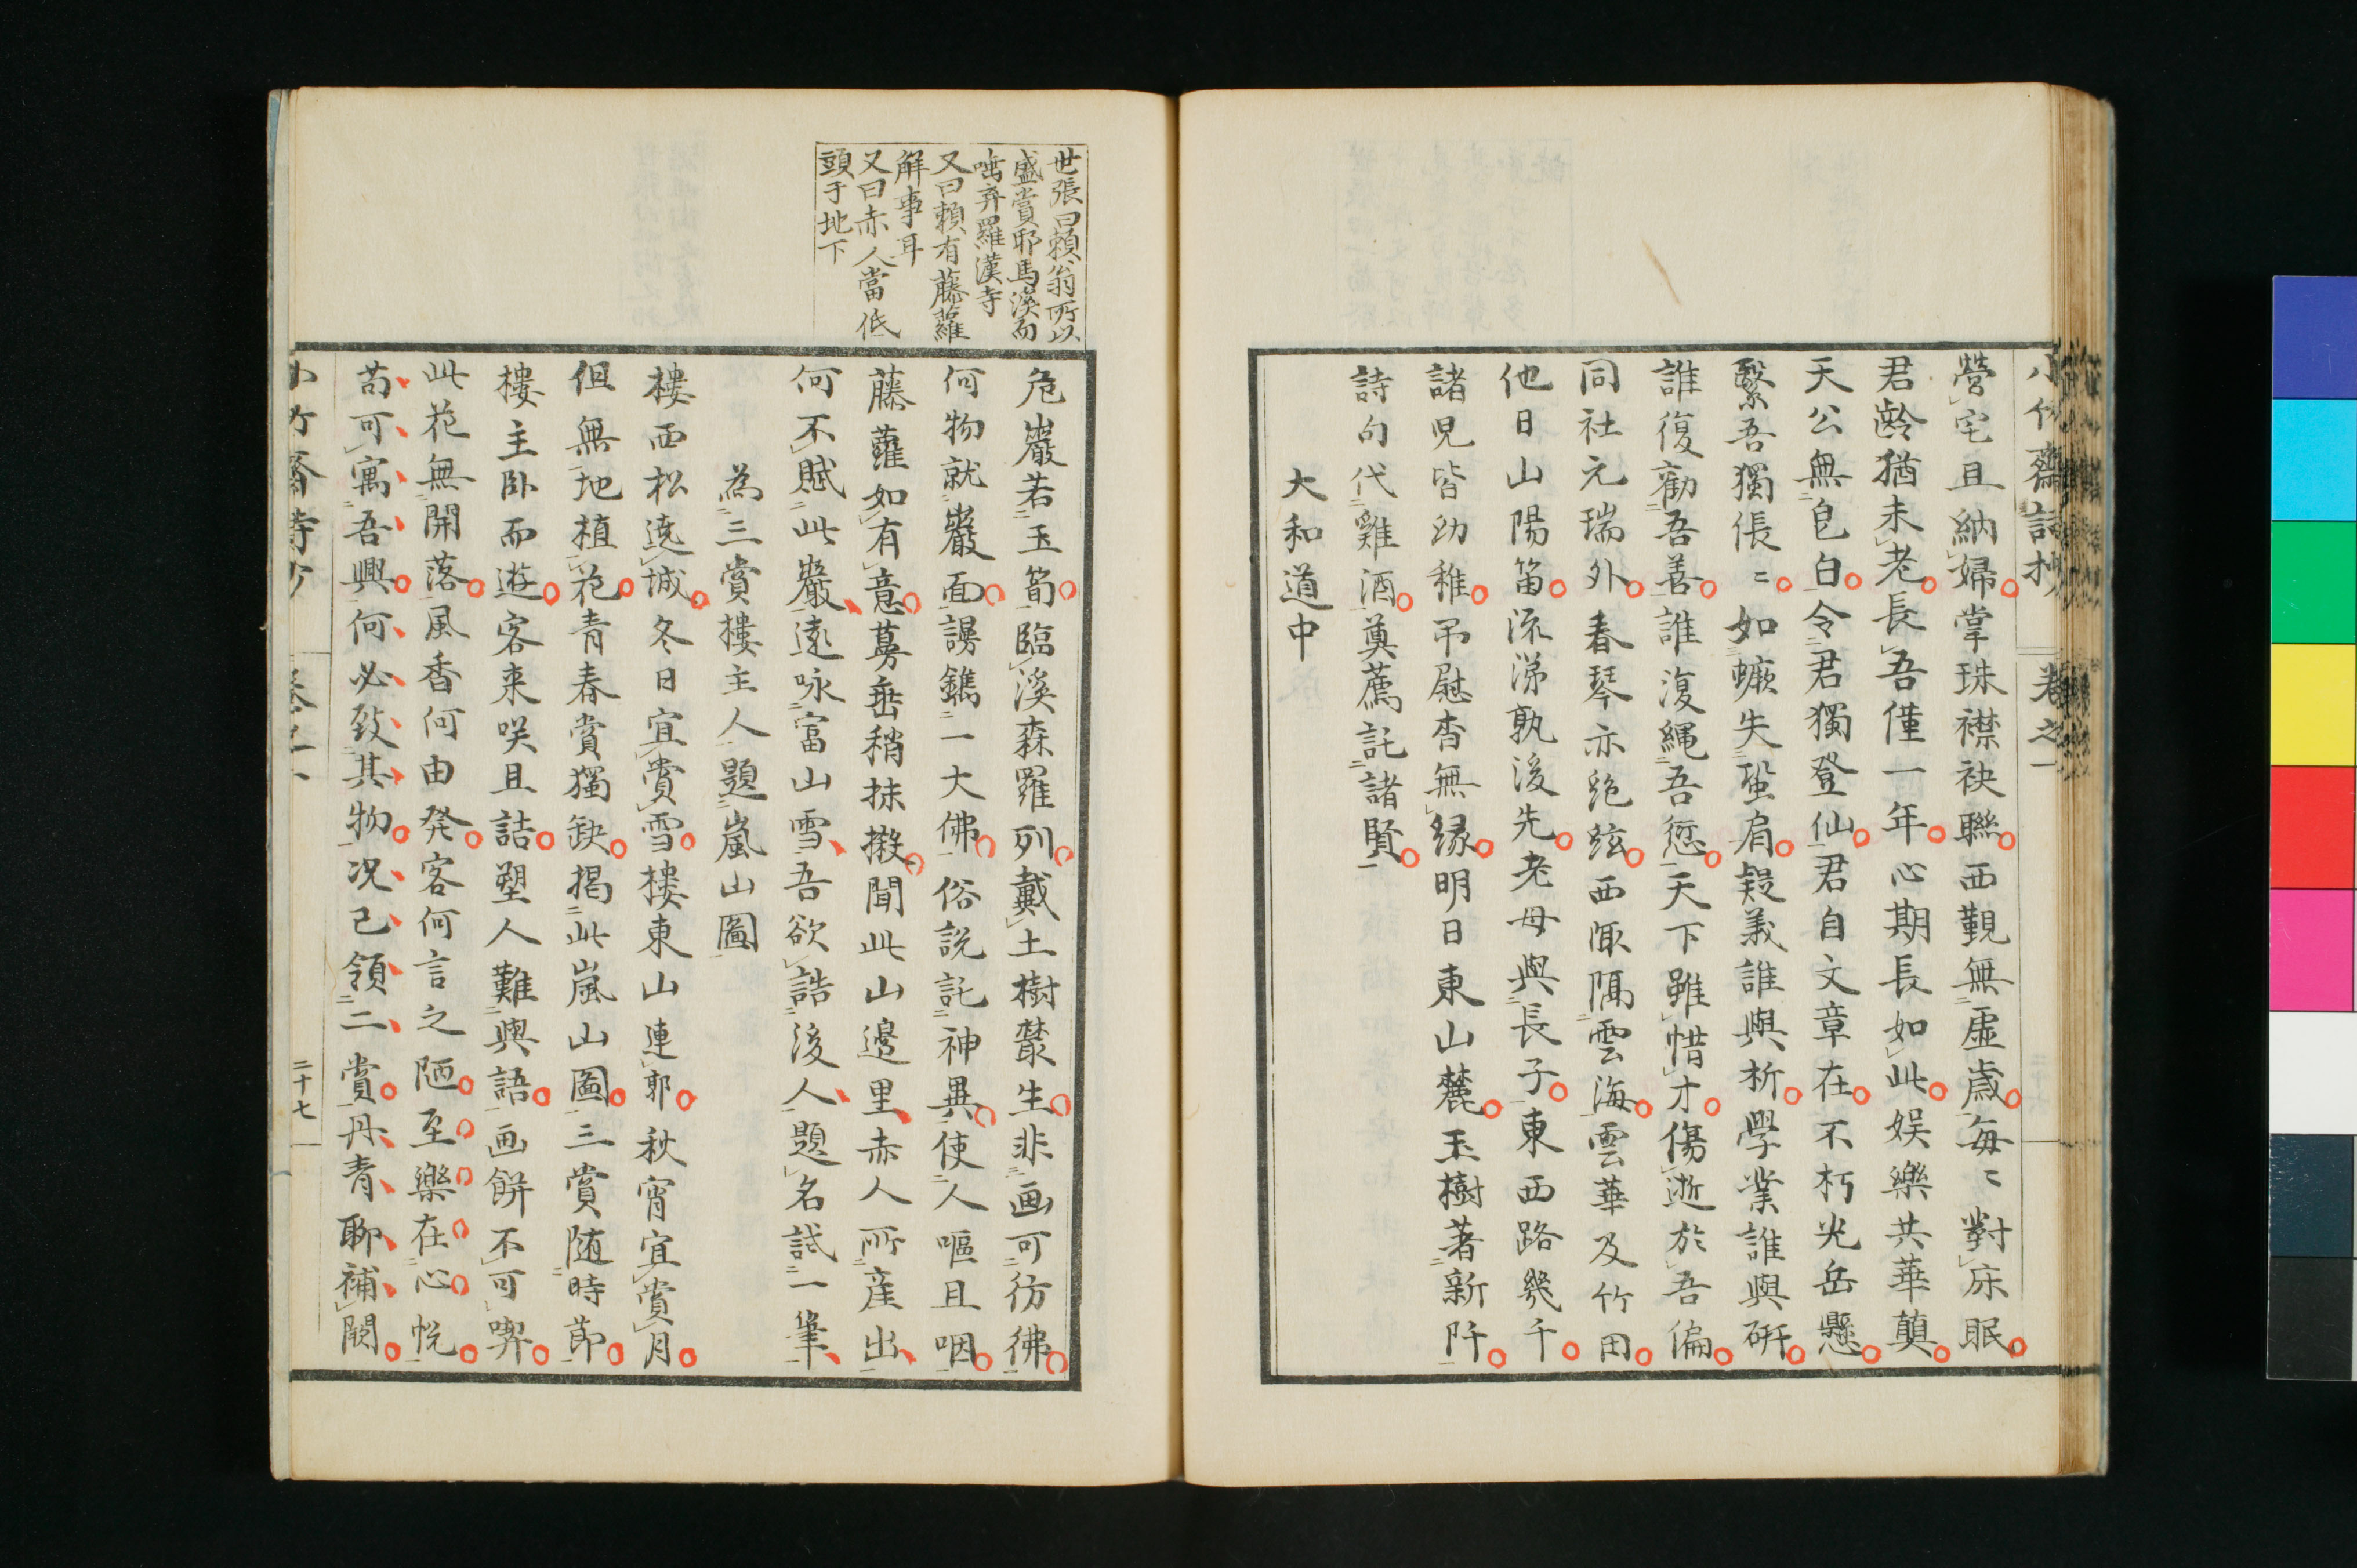 小竹齋詩抄 卷之一
營宅且納婦掌珠襟袂聯西覲無虚歳毎〻對床眠
君齡猶未老長吾僅一年心期長如此娯樂共華顛
天公無皀白令君獨登仙君自文章在不朽光岳懸
繄吾獨倀〻如蟨失蛩肩疑義誰與析學業誰與硏
誰復勸吾善誰復繩吾愆天下雖惜才傷逝於吾偏
同社元瑞外春琴亦絶絃西陬隔雲海雲華及竹田
他日山陽笛流涕孰後先老母與長子東西路幾千
諸児皆幼稚吊慰杳無縁明日東山麓玉樹著新阡
詩句代雞酒奠薦託諸賢
大和道中
世張曰賴翁所以
盛賞耶馬溪而
唾弃羅漢寺
又曰賴有藤蘿
解事耳
又曰赤人當低
頭于地下
危巖若玉筍臨溪森羅列戴土樹叢生非画可彷彿
何物就巖面謾鐫一大佛俗説託神異使人嘔且咽
藤蘿如有意蔓垂稍抹摋聞此山邊里赤人所産出
何不賦此巖遠咏富山雪吾欲誥後人題名試一筆
為三賞樓主人題嵐山圖
樓西松遶城冬日宜賞雪樓東山連郭秋宵宜賞月
但無地植花青春賞獨缺掲此嵐山圖三賞随時節
樓主卧而遊客来咲且詰塑人難與語画餅不可喫
此花無開落風香何由発客何言之陋至樂在心悦
苟可寓吾興何必致其物况已領二賞丹青聊補闕
小竹齋詩抄 卷之一 二十七